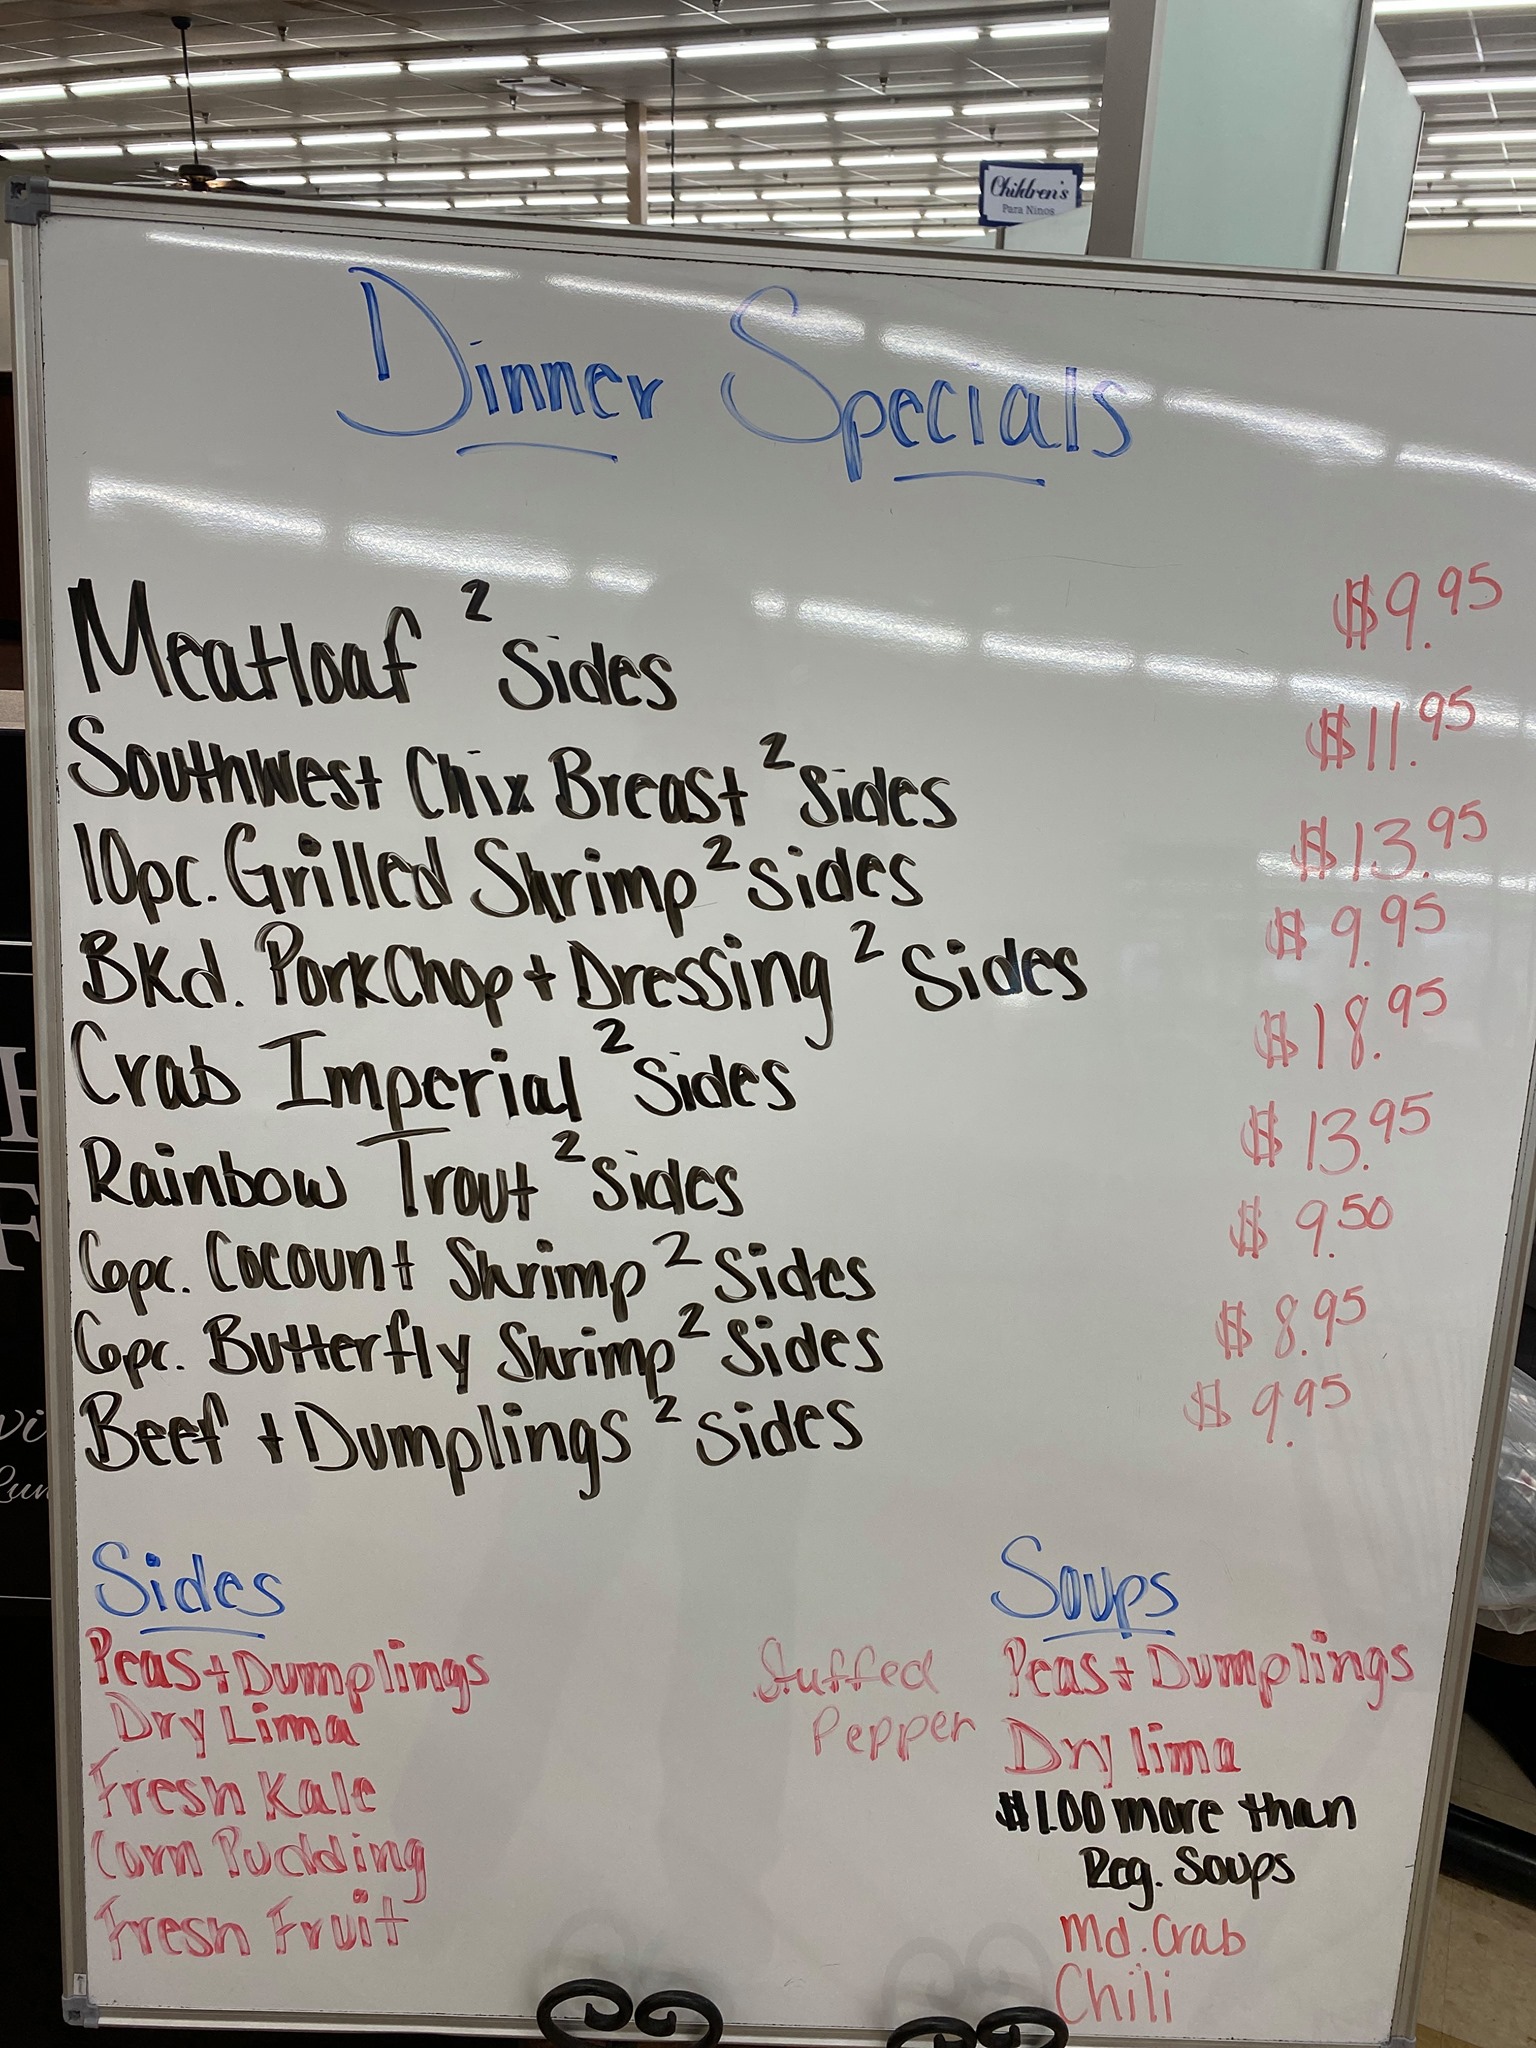 Children's
Para Ninos
Dinner Specials
Meatloaf 2 Sides $9.95
Southwest Chix Breast 2 Sides $11.95
10pc. Grilled Shrimp 2 Sides $13.95
Bkd. Pork Chop + Dressing 2 Sides $9.95
Crab Imperial 2 Sides $18.95
Rainbow Trout 2 Sides $13.95
6pc. Cocount Shrimp 2 Sides $9.50
6pc. Butterfly Shrimp 2 Sides $8.95
Beef + Dumplings 2 Sides $9.95
Sides
Peas + Dumplings
Dry Lima
Fresh Kale
Corn Pudding
Fresh Fruit
Stuffed
Pepper
Soups
Peas + Dumplings
Dry lima
$1.00 more than
Reg. Soups
Md. Crab
Chili